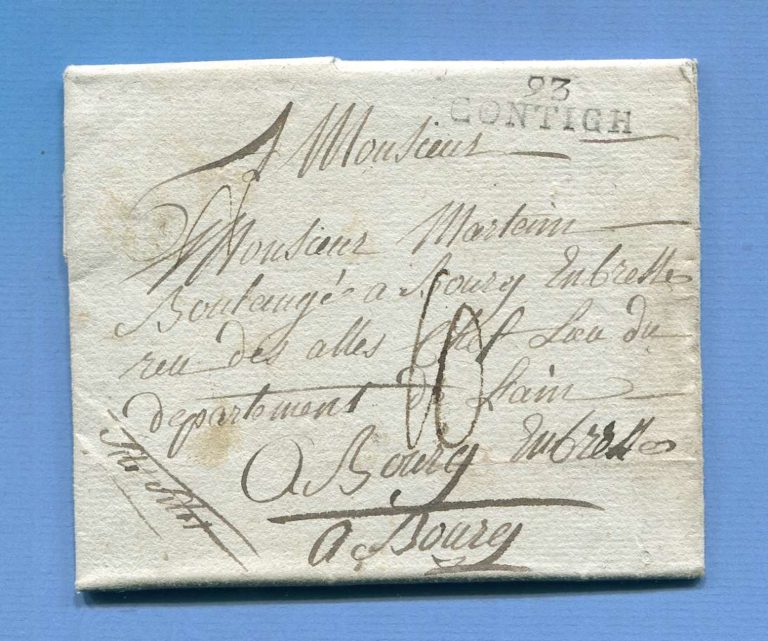 93
CONTIGH
A Monsieur
Monsieur Martein
Boulangé a Bourg Enbresse
reu des alles Chef Lieu du
departement de Lain
10
A Bourg Enbresse
a Bourg